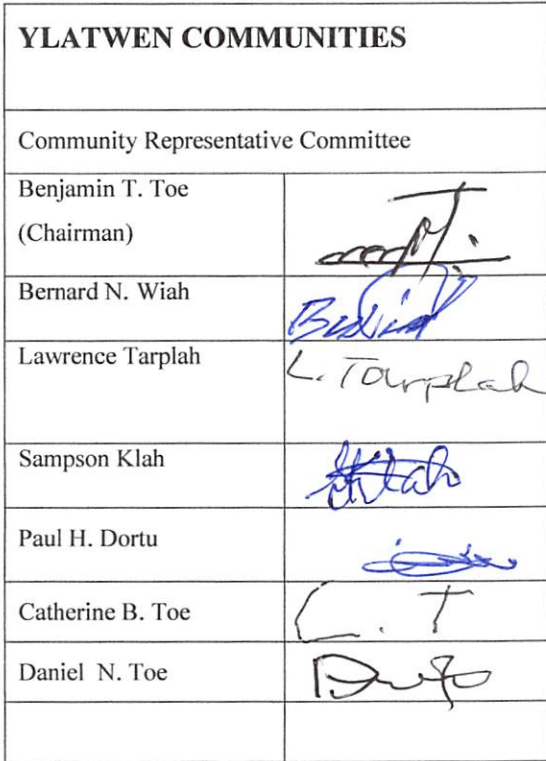 YLATWEN COMMUNITIES
Community Representative Committee
Benjamin T. Toe
(Chairman)
Bernard N. Wiah
Lawrence Tarplah
L. Tarplah
Sampson Klah
Paul H. Dortu
Catherine B. Toe
C. T
Daniel N. Toe